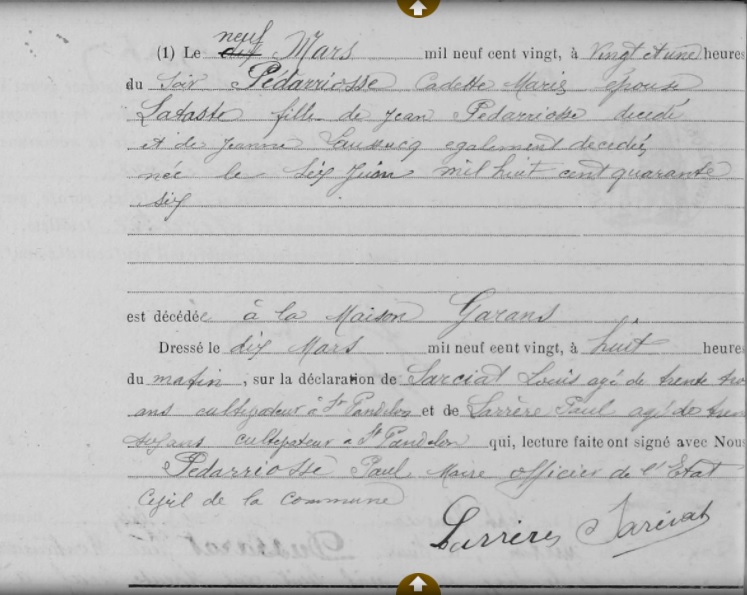 neuf
(1) Le dix Mars mil neuf cent vingt, à vingt et une heures
du soir Pédarriosse Cadette Marie épouse
Lataste fille de Jean Pedarriosse decédé
et de Jeanne Laussucq egalement decedés,
née le six Juin mil huit cent quarante
six
est décédée à la Maison Garans
Dressé le dix Mars mil neuf cent vingt, à huit heure
du matin, sur la déclaration de Sarciat Louis agé de trente tro
ans cultivateur à St Pandelon et de Larrère Paul agé de tren
six ans cultivateur à St Pandelon qui, lecture faite ont signé avec Nous
Pédarriosse Paul Maire officier de l'Etat
Civil de la commune
Larrère Sarciat